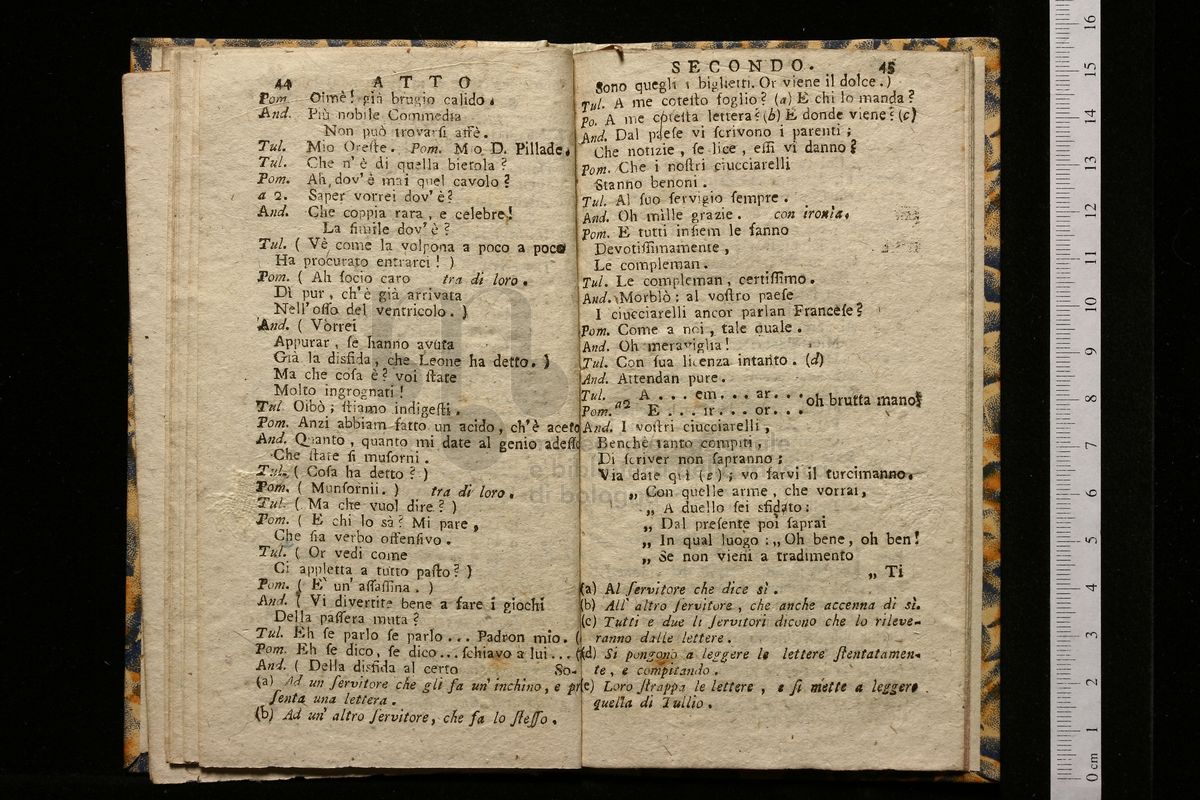 44 ATTO
Pom. Oimè! già brugio calido.
And. Più nobile Commedia
Non può trovarsi affè.
Tul. Mio Oreste. Pom. Mio D. Pillade.
Tul. Che n'è di quella bietola?
Pom. Ah, dov'è mai quel cavolo?
a 2. Saper vorrei dov'è?
And. Che coppia rara, e celebre!
La simile dov'è?
Tul. ( Vè come la volpona a poco a poco
Ha procurato entrarci! )
Pom. ( Ah socio caro tra di loro.
Dì pur, ch'è già arrivata
Nell'osso del ventricolo. )
And. ( Vorrei
Appurar, se hanno avuta
Già la disfida, che Leone ha detto. )
Ma che cosa è? voi state
Molto ingrognati!
Tul. Oibò; stiamo indigesti.
Pom. Anzi abbiam fatto un acido, ch'è aceto
And. Quanto, quanto mi date al genio adesso
Che state sì musorni.
Tul. ( Cosa ha detto? )
Pom. ( Munsornii. ) tra di loro.
Tul. ( Ma che vuol dire? )
Pom. ( E chi lo sà? Mi pare,
Che sia verbo offensivo.
Tul. ( Or vedi come
Ci appletta a tutto pasto? )
Pom. ( E' un' assassina. )
And. ( Vi divertite bene a fare i giochi
Della passera muta?
Tul. Eh se parlo se parlo... Padron mio. (
Pom. Eh se dico, se dico... schiavo a lui... (
And. ( Della disfida al certo So-
(a) Ad un servitore che gli fa un' inchino, e pr
senta una lettera.
(b) Ad un' altro servitore, che fa lo stesso.
SECONDO. 45
Sono quegli i biglietti. Or viene il dolce.)
Tul. A me cotesto foglio? (a) E chi lo manda?
Po. A me cotesta lettera? (b) E donde viene? (c)
And. Dal paese vi scrivono i parenti;
Che notizie, se lice, essi vi danno?
Pom. Che i nostri ciucciarelli
Stanno benoni.
Tul. Al suo servigio sempre.
And. Oh mille grazie. con ironìa.
Pom. E tutti insiem le fanno
Devotissimamente,
Le compleman.
Tul. Le compleman, certissimo.
And. Morblò: al vostro paese
I ciucciarelli ancor parlan Francese?
Pom. Come a noi, tale quale.
And. Oh meraviglia!
Tul. Con sua licenza intanto. (d)
And. Attendan pure.
Tul. A... em... ar...
Pom. a2 E... ir... or... oh brutta mano!
And. I vostri ciucciarelli,
Benchè tanto compiti,
Di scriver non sapranno;
Via date qui (e); vo farvi il turcimanno.
„ Con quelle arme, che vorrai,
„ A duello sei sfidato:
„ Dal presente poi saprai
„ In qual luogo: „ Oh bene, oh ben!
„ Se non vieni a tradimento
„ Ti
(a) Al servitore che dice sì.
(b) All' altro servitore, che anche accenna di sì.
(c) Tutti e due li servitori dicono che lo rileve-
ranno dalle lettere.
(d) Si pongono a leggere le lettere stentatamen-
te, e compitando.
(e) Loro strappa le lettere, e si mette a leggere
quella di Tullio.